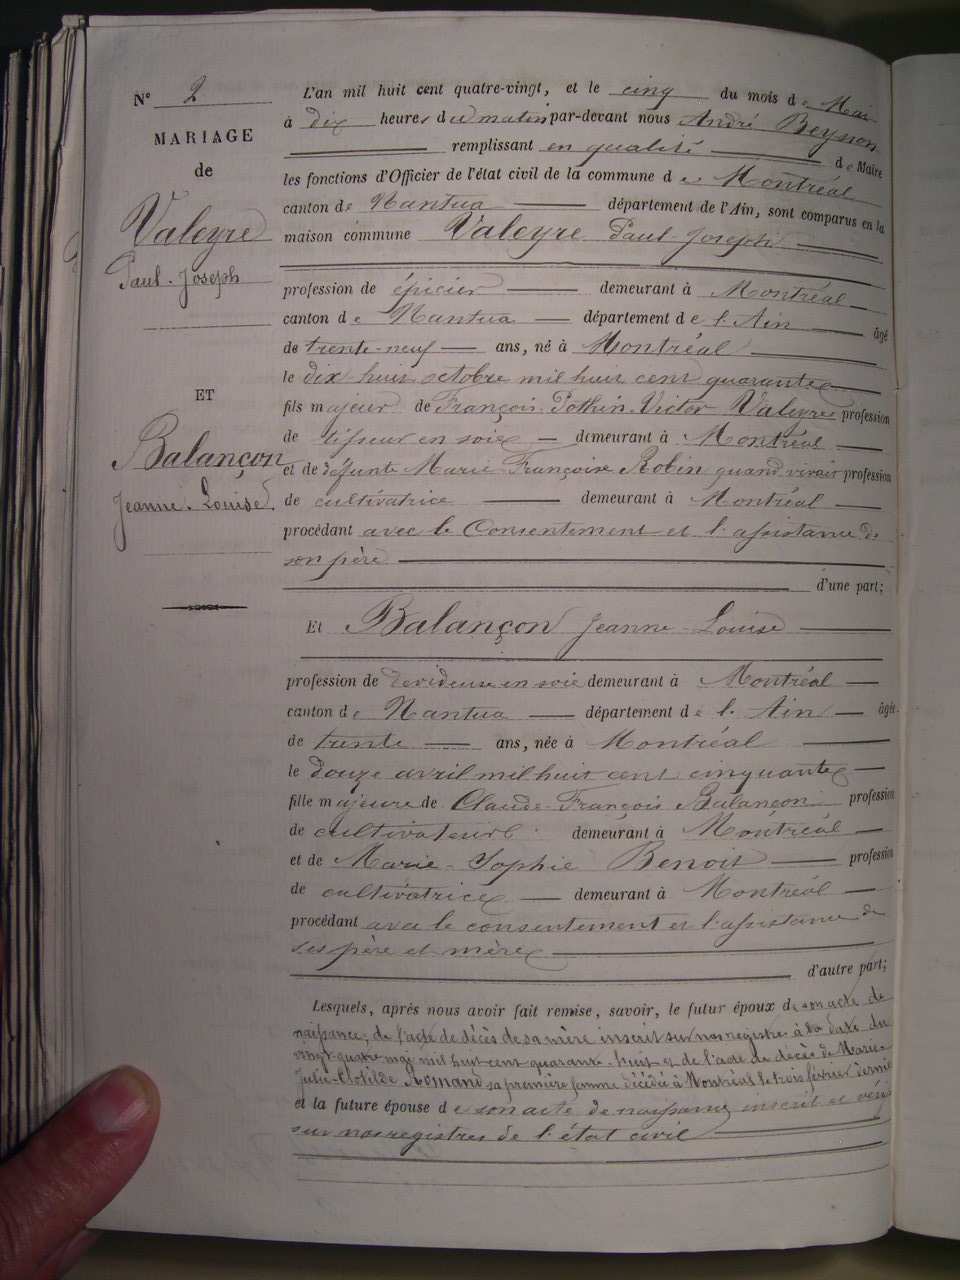 N° 2
MARIAGE
de
Valeyre
Paul-Joseph
ET
Balançon
Jeanne-Louise
L'an mil huit cent quatre-vingt, et le cinq du mois de Mai
à dix heures du matin par-devant nous André Beysson
remplissant en qualité de Maire
les fonctions d'Officier de l'état civil de la commune de Montréal
canton de Nantua département de l'Ain, sont comparus en la
maison commune Valeyre Paul-Joseph
profession de épicier demeurant à Montréal
canton de Nantua département de l'Ain âgé
de trente-neuf ans, né à Montréal
le dix huit octobre mil huit cent quarante
fils majeur de François Pothin Victor Valeyre profession
de tisseur en soie demeurant à Montréal
et de défunte Marie Françoise Robin quand vivait profession
de cultivatrice demeurant à Montréal
procédant avec le Consentement et l'assistance de
son père
d'une part;
Et Balançon Jeanne-Louise
profession de dévideuse en soie demeurant à Montréal
canton de Nantua département de l'Ain âgée
de trente ans, née à Montréal
le douze avril mil huit cent cinquante
fille majeure de Claude-François Balançon profession
de cultivateur demeurant à Montréal
et de Marie-Sophie Benoit profession
de cultivatrice demeurant à Montréal
procédant avec le consentement et l'assistance de
ses père et mère
d'autre part;
Lesquels, après nous avoir fait remise, savoir, le futur époux de son acte de
naissance, de l'acte de décès de sa mère inscrit sur nos registres à la date du
vingt quatre mai mil huit cent quarante-huit et de l'acte de décès de Marie-
Julie-Clotilde Romand sa première femme décédée à Montréal le trois février dernier
et la future épouse de son acte de naissance inscrit et
sur nos registres de l'état civil